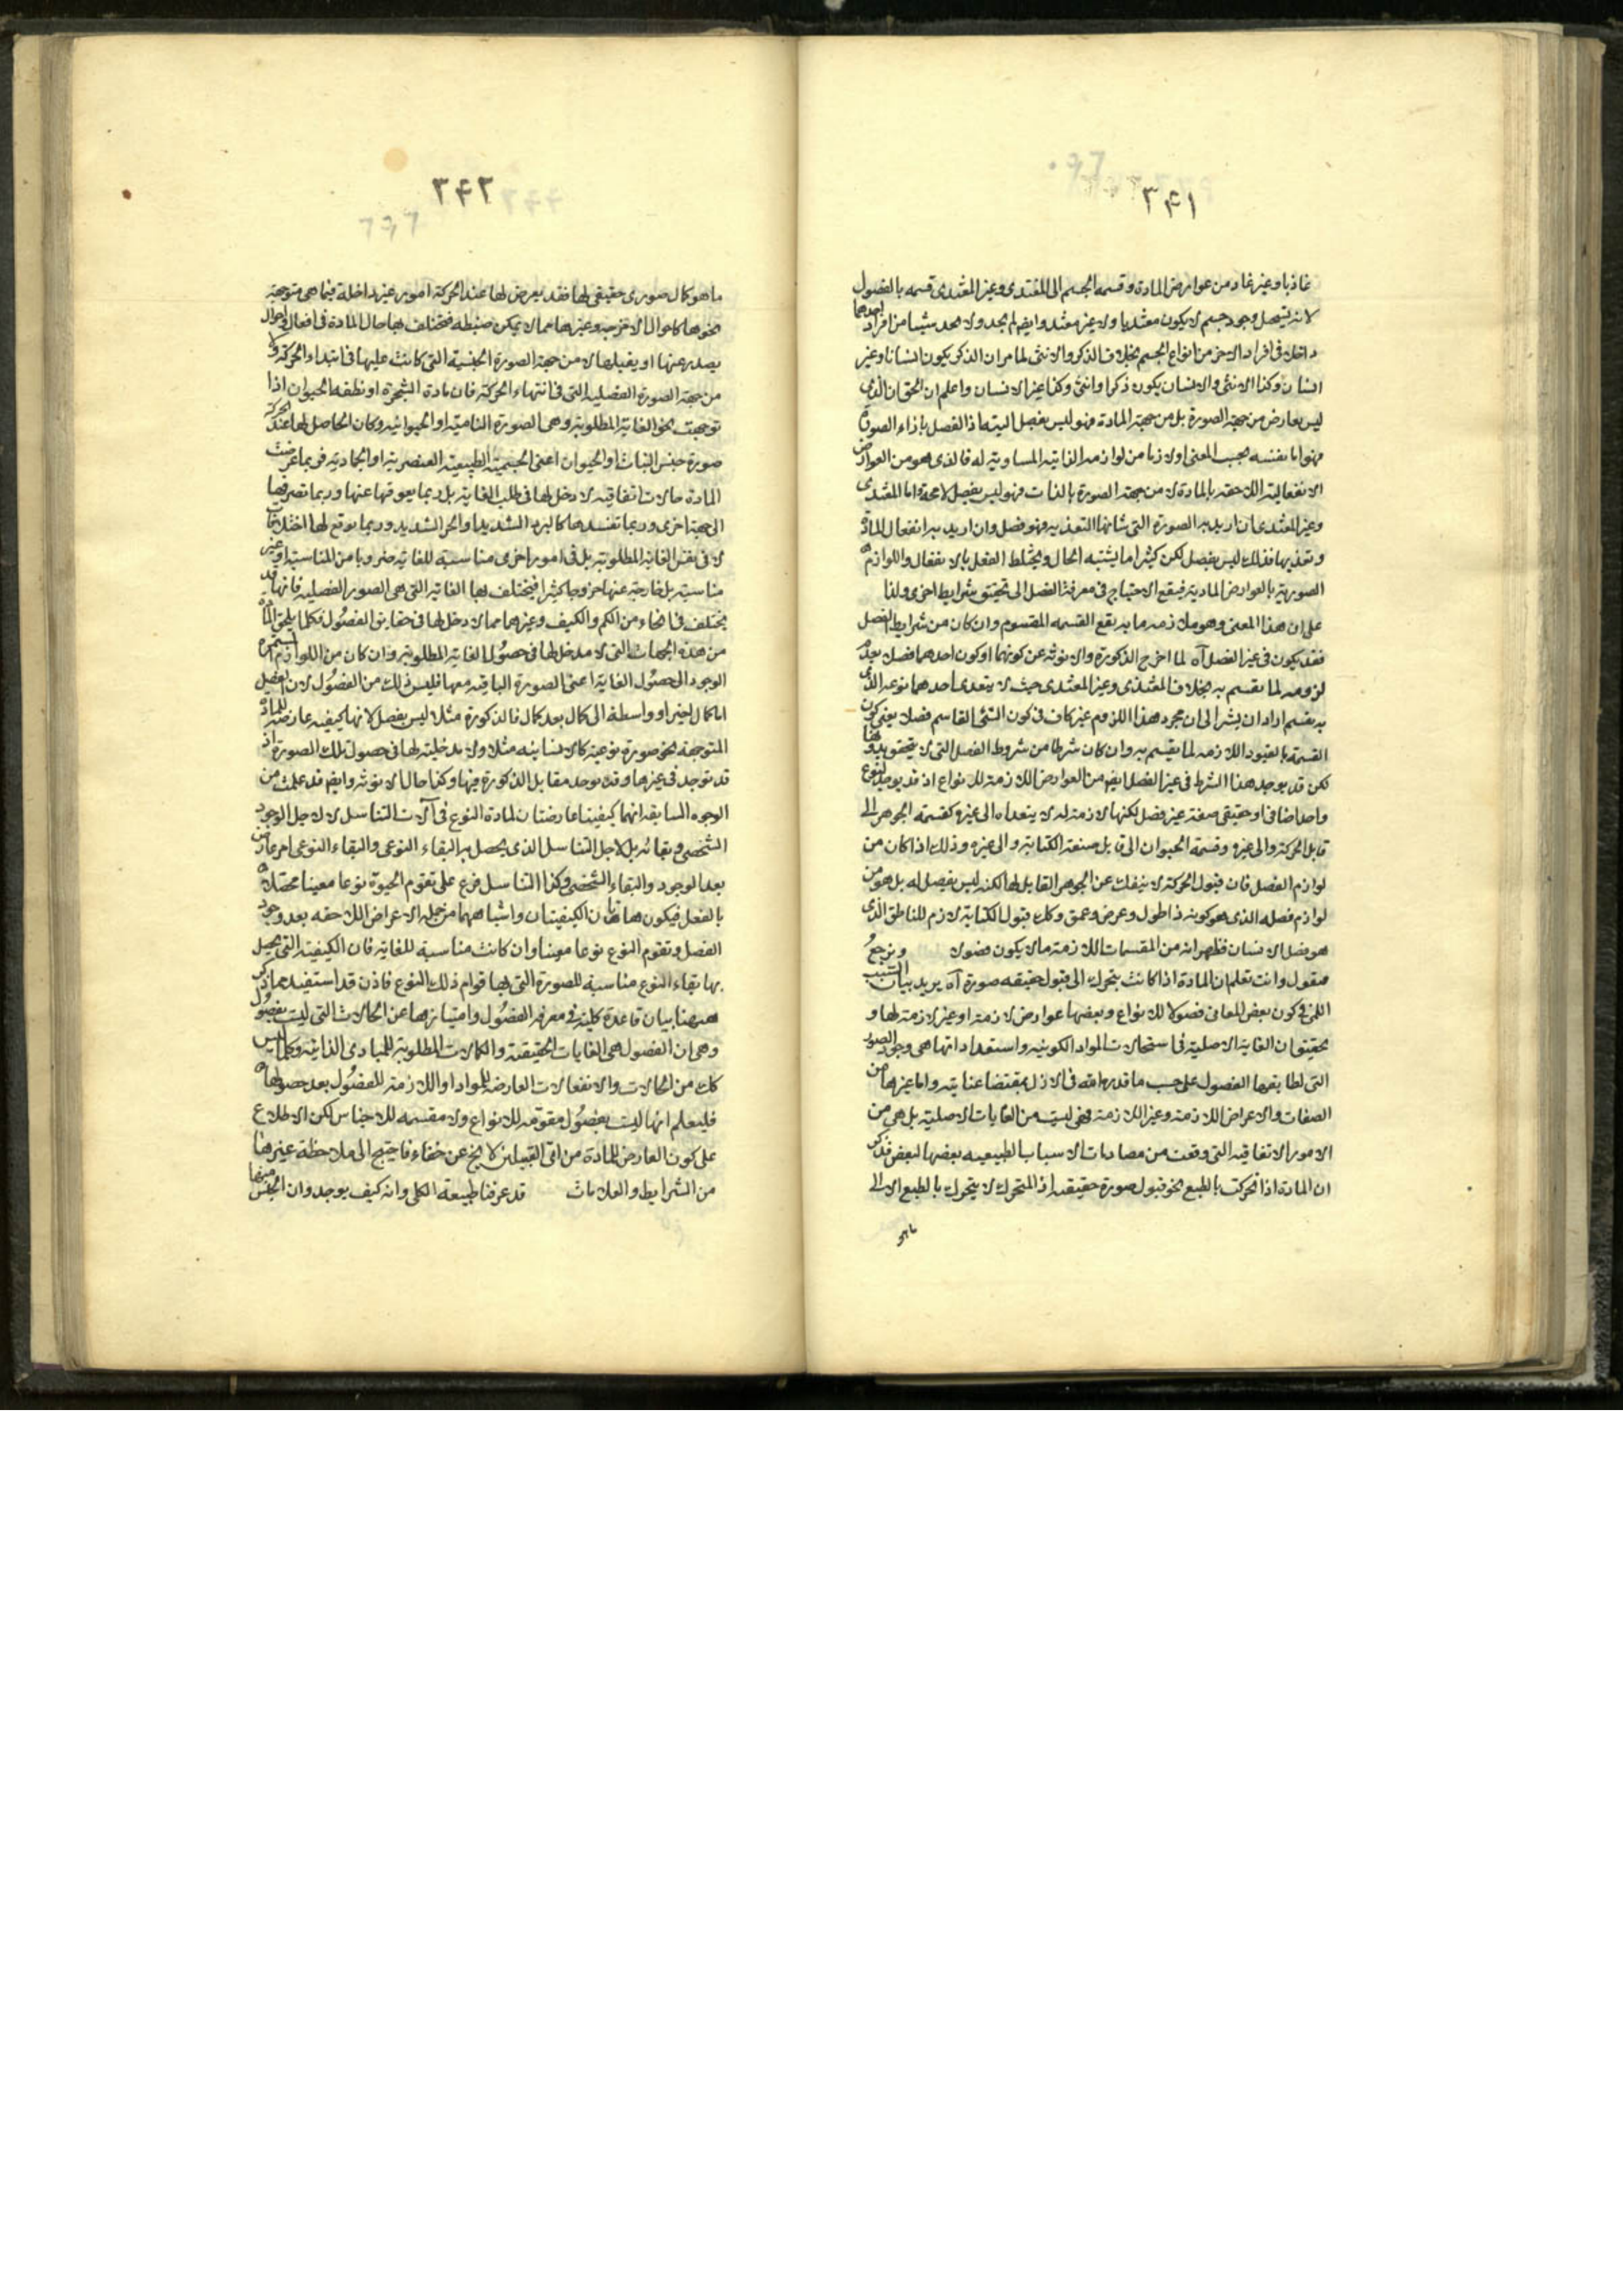 ٣٤١
غاذيا وغير غاد من عوارض المادة وقسمه الجسم الى المغتدى وغير المغتدى قسمه بالفصول
لانه يستحيل وجود جسم لا يكون مغتديا ولا غير مغتد وايضا لم يجد ولا يحد شيئا من افراد احدهما
داخلا فى افراد الاخر من انواع الجسم بخلاف الذكر والانثى لما مر ان الذكر يكون انسانا وغير
انسان وكذا الانثى والانسان يكون ذكرا وانثى وكذا غير الانسان واعلم ان الحق ان الذى
ليس بعارض من جهة الصورة بل من جهة المادة فهو ليس بفصل البته اذ الفصل بازاء الصورة
فهو اما نفسه بحسب المعنى او لازما من لوازمه الذاتيه المساوية له فالذى هو من العوارض
الانفعاليه اللاحقه بالمادة لا من جهة الصورة بالذات فهو ليس بفصل لا محة واما المغتدى
وغير المغتدى فان اريد به الصورة التى شانها التغذيه فهو فصل وان اريد به انفعال المادة
وتغذيها فذلك ليس بفصل لكن كثيرا ما يشتبه الحال ويختلط الفعل بالانفعال واللوازم
الصوريه بالعوارض الماديه فيقع الاحتياج فى معرفة الفصل الى تحقيق شرايط اخرى ولذا
على ان هذا المعنى وهو ملازمه ما به يقع القسمه المقسوم وان كان من شرايط الفصل
فقد يكون فى غير الفصل آه لما اخرج الذكورة والانوثه عن كونهما او كون احدهما فصلا بعد
لزومه لما يقسم به بخلاف المغتذى وغير المغتدى حيث لا يتعدى احدهما نوعه الذى
به يقسم اراد ان يشير الى ان مجرد هذا اللزوم غير كاف فى كون الشئ القاسم فصلا يعنى كون
القسمة بالقيود اللازمه لما يقسم به وان كان شرطا من شروط الفصل التى لا يتحقق بدونها
لكن قد يوجد هذا الشرط فى غير الفصل ايضا من العوارض اللازمة للانواع اذ قد يوجد لنوع
واحد اضافى او حقيقى صفة غير فصل لكنها لازمة له لا يتعداه الى غيره كقسمه الجوهر الى
قابل الحركة والى غيره وقسمة الحيوان الى قابل صنعة الكتابة والى غيره وذلك اذا كان من
لوازم الفصل فان قبول الحركة لا ينفك عن الجوهر القابل لها لكنه ليس بفصل له بل هو من
لوازم فصله الذى هو كونه ذا طول وعرض وعمق وكذا قبول الكتابة لازم للناطق الذى
هو فصل الانسان فظهر انه من المقسمات اللازمة ما لا يكون فصولا ونرجع
فنقول وانت تعلم ان المادة اذا كانت يتحرك الى قبول حقيقه صورة آه يريد بيان السبب
اللمى فى كون بعض المعانى فصولا للانواع وبعضها عوارض لازمة او غير لازمة لها و
تحقيق ان الغاية الاصلية فى استحالات المواد الكونيه واستعداداتها هى وجود الصور
التى لطايفها الفصول على حسب ما قدرها الله فى الازل بمقتضا عنايته واما غيرها من
الصفات والاعراض اللازمة وغير اللازمة فهى ليست من الغايات الاصلية بل هى من
الامور الاتفاقيه التى وقعت من مصادمات الاسباب الطبيعيه بعضها لبعض فذكر
ان المادة اذا تحركت بالطبع نحو قبول صورة حقيقه اذ المتحرك لا يتحرك بالطبع الا الى
ما هو
٣٤٢
ما هو كمال صورى حقيقى لها فقد يعرض لها عند الحركة امور غير داخلة فيما هى متوجهة
نحوها كاحوال الامزجه وغيرها مما لا يمكن ضبطه فتختلف بها حال المادة فى افعال واحوال
يصدر عنها او يقبلها لا من جهة الصورة الجنسية التى كانت عليها فى ابتداء الحركة ولا
من جهة الصورة الفصليه التى فى انتهاء الحركة فان مادة الشجرة او نطفه الحيوان اذا
توجهت نحو الغاية المطلوبة وهى الصورة النامية او الحيوانيه وكان الحاصل لها عند الحركة
صورة جنس النبات او الحيوان اعنى الجسمية الطبيعية العنصرية او الجمادية فربما عرضت
المادة حالات اتفاقيه لا دخل لها فى طلب الغاية بل ربما يعوقها عنها وربما تصرفها
الى جهة اخرى وربما تفسدها كالبرد الشديد او الحر الشديد وربما يوقع لها اختلافا
لا فى نفس الغاية المطلوبة بل فى امور اخرى مناسبة للغايه ضروبا من المناسبة او غير
مناسبة بل خارجة عنها خروجا كثيرا فيختلف بها الغاية التى هى الصور الفصليه فانها قد
يختلف فى انحاء من الكم والكيف وغيرهما مما لا دخل لها فى حقايق الفصول فكلما يلحق المادة
من هذه الجهات التى لا مدخل لها فى حصول الغاية المطلوبة وان كان من اللوازم المستمرة
الوجود الى حصول الغاية اعنى الصورة الباقيه معها فليس ذلك من الفصول لان الفصل
اما كمال اخير او واسطة الى كمال بعد كمال فالذكورة مثلا ليس بفصل لانها كيفيه عارضة للمادة
المتوجهة نحو صورة نوعية كالانسانيه مثلا ولا مدخلية لها فى حصول تلك الصورة اذ
قد توجد فى غيرها وقد يوجد مقابل الذكورة فيها وكذا حال الانوثه وايضا قد علمت من
الوجوه السابقه انهما كيفيتا عارضتان لمادة النوع فى آلات التناسل لا لاجل الوجود
الشخصى وبقائه بل لاجل التناسل الذى يحصل به البقاء النوعى والبقاء النوعى امر عارض
بعد الوجود والبقاء الشخصى وكذا التناسل فرع على تقوم الحيوة نوعا معينا محصلا
بالفعل فيكون هاتان الكيفيتان واشباههما من جملة الاعراض اللاحقه بعد وجود
الفصل وتقوم النوع نوعا معينا وان كانت مناسبة للغاية فان الكيفية التى يحصل
بها بقاء النوع مناسبة للصورة التى بها قوام ذلك النوع فاذن قد استفيد مما ذكر
ههنا بيان قاعدة كلية فى معرفة الفصول وامتيازها عن الحالات التى ليست بفصول
وهى ان الفصول هى الغايات الحقيقية والكمالات المطلوبة للمبادى الذاتيه وكلما ليس
كذلك من الحالات والانفعالات العارضة للمواد او اللازمة للفصول بعد حصولها
فليعلم انها ليست بفصول مقومة للانواع ولا مقسمه للاجناس لكن الاطلاع
على كون العارض للمادة من اى القبيلين لا يخ عن خفاء فاحتيج الى ملاحظة غيرها
من الشرايط والعلامات قد عرفنا طبيعة الكلى وانه كيف يوجد وان الجنس منها